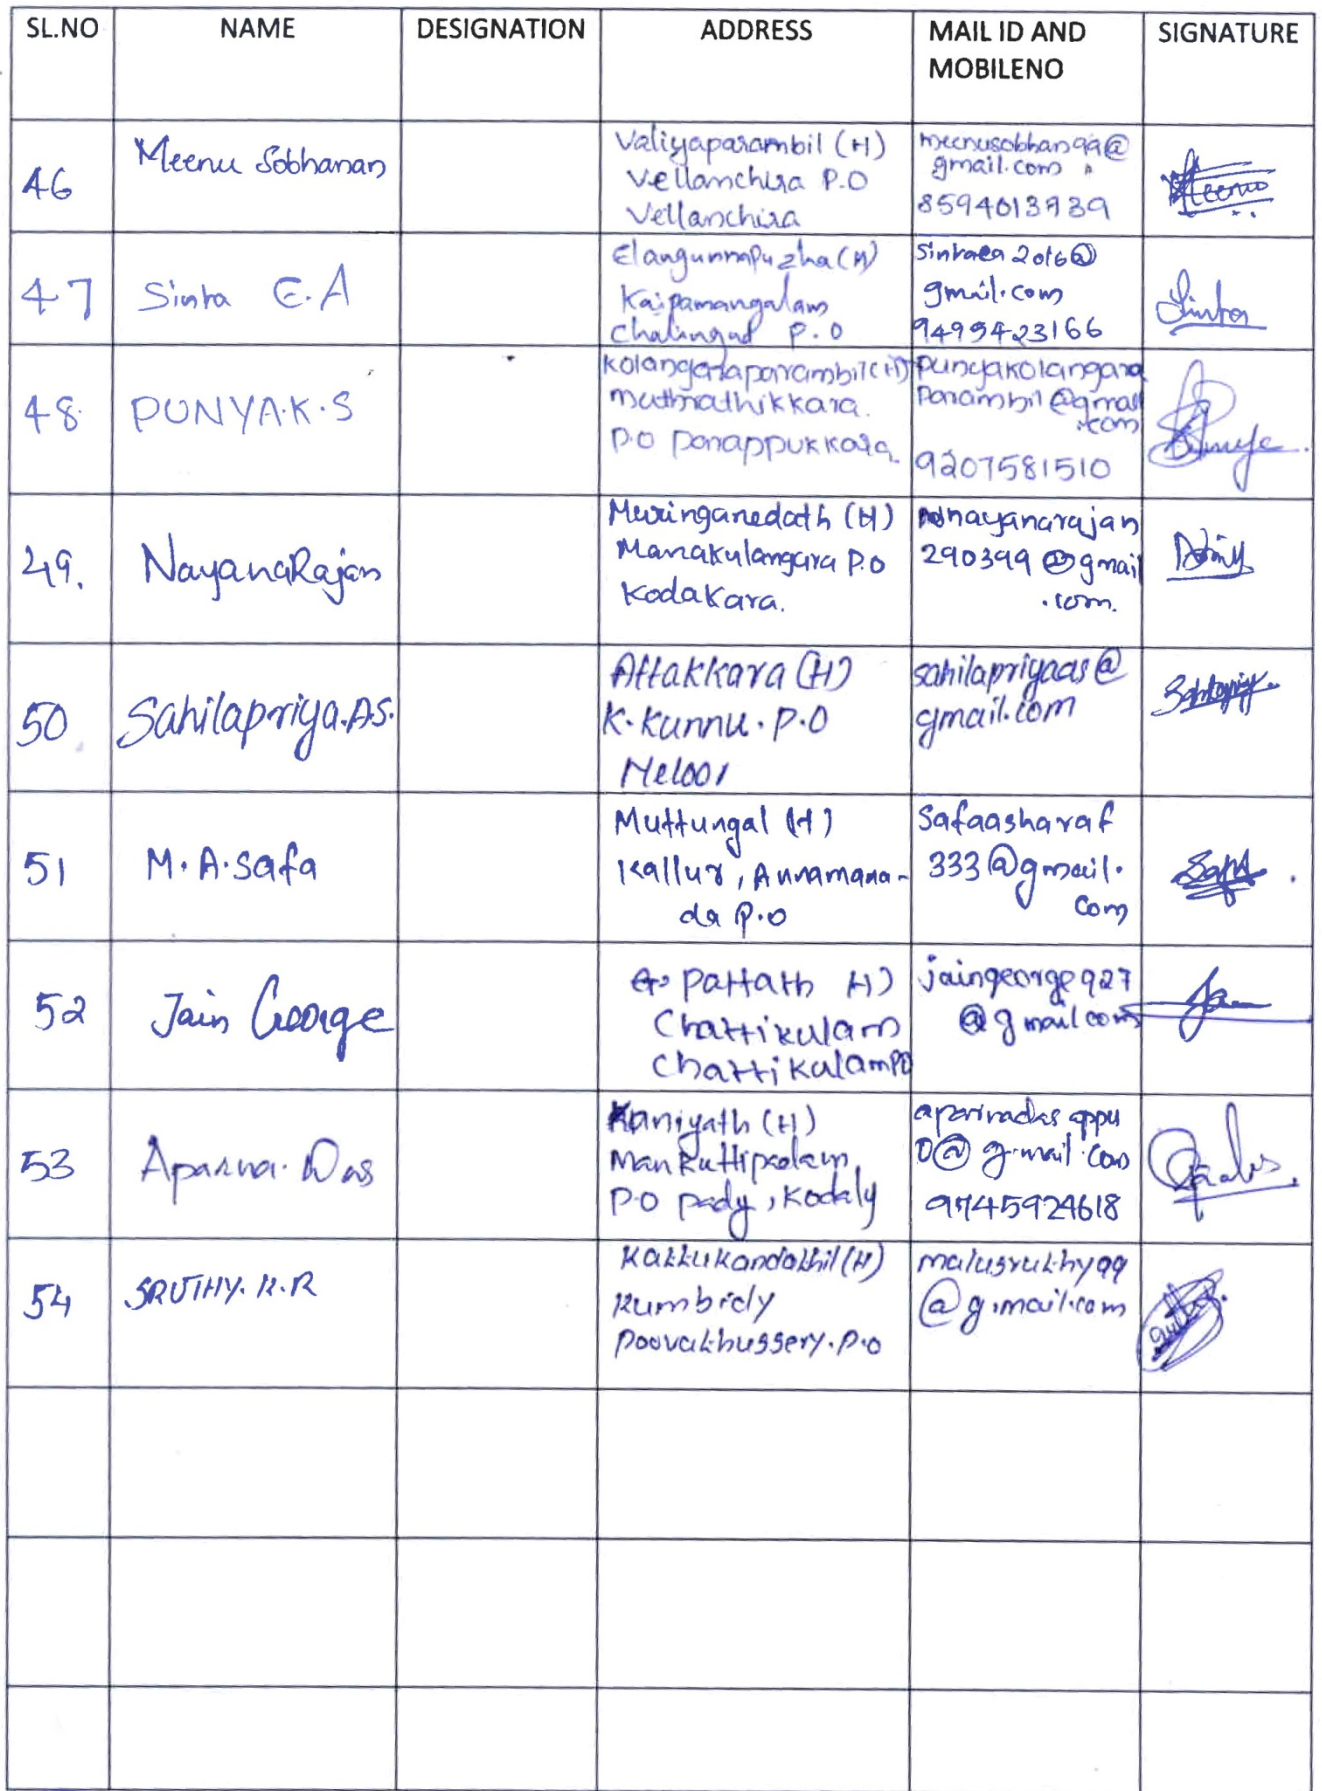 SL.NO NAME DESIGNATION ADDRESS MAIL ID AND MOBILENO SIGNATURE
46 Meenu Sobhanan
Valiyaparambil (H)
Vellanchira P.O
Vellanchira
meenusobhan99@
gmail.com
8594013939
Meenu
47 Sinta E.A
Elangunnapuzha (H)
Kaipamangalam
Chalingad P.O
sintaea2016@
gmail.com
9495423166
Sinta
48 PUNYA.K.S
kolangaraparambil(H)
mutmathikkara.
P.O panappukkara
punyakolangara
parambil@gmail
.com
9207581510
49. Nayana Rajan
Muringanedath (H)
Manakulangara P.O
Kodakara.
nayanarajan
290399@gmail
.com.
50 Sahilapriya.A.S.
Attakkara (H)
K.Kunnu.P.O
Meloor
sahilapriyaas@
gmail.com
51 M.A.Safa
Muttungal (H)
Kallur, Annamana-
da P.O
Safaasharaf
333@gmail.
com
Safa
52 Jain George
Pattath H)
Chattikulam
Chattikulam PO
jaingeorge927
@gmail.com
53 Aparna.Das
Kaniyath (H)
Mankuttipadam,
P.O pady, Kodaly
aparnadas appu
0@g.mail.com
9745924618
54 SRUTHY.K.R
Kattukandathil(H)
Kumbidy
Poovathussery.P.O
malusruthy99
@g.mail.com